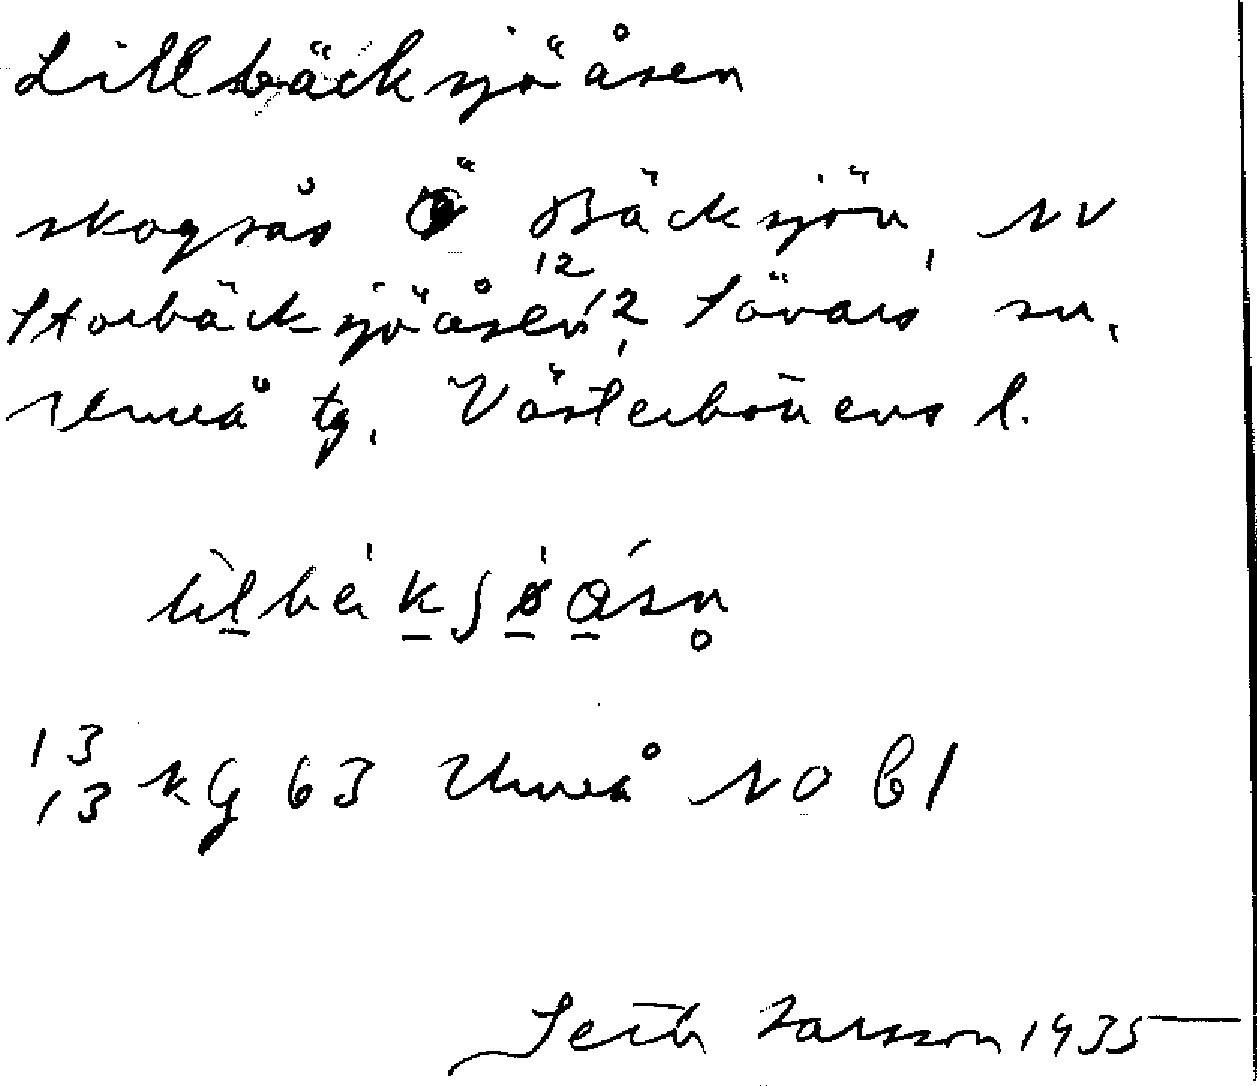 Lillbäcksjöåsen
skogsås Ö Bäcksjön, NV
Storbäcksjöåsen 12, Sävars sn,
Umeå tg, Västerbottens l.
13 KG 63 Umeå NO b1
13
Seth Larsson 1935